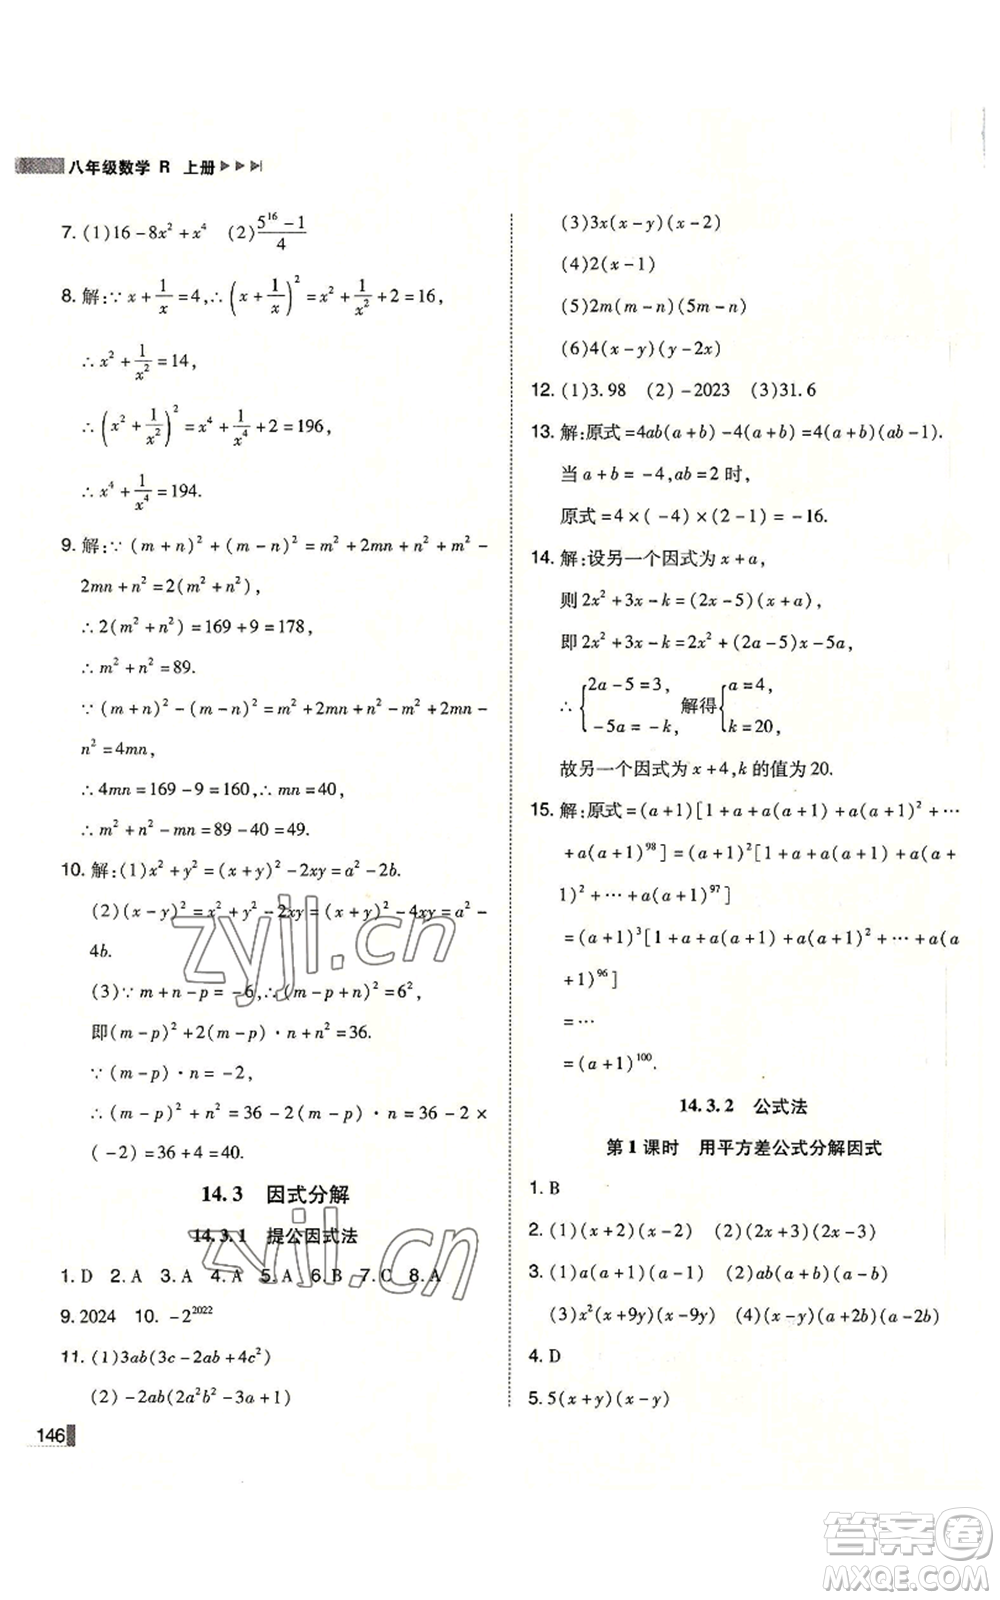 八年级数学 R 上册
7. (1)16-8x²+x⁴ (2)(5¹⁶-1)/4
8. 解:∵x+1/x=4,∴(x+1/x)²=x²+1/x²+2=16,
∴x²+1/x²=14,
∴(x²+1/x²)²=x⁴+1/x⁴+2=196,
∴x⁴+1/x⁴=194.
9. 解:∵(m+n)²+(m-n)²=m²+2mn+n²+m²-
2mn+n²=2(m²+n²),
∴2(m²+n²)=169+9=178,
∴m²+n²=89.
∵(m+n)²-(m-n)²=m²+2mn+n²-m²+2mn-
n²=4mn,
∴4mn=169-9=160,∴mn=40,
∴m²+n²-mn=89-40=49.
10. 解:(1)x²+y²=(x+y)²-2xy=a²-2b.
(2)(x-y)²=x²+y²-2xy=(x+y)²-4xy=a²-
4b.
(3)∵m+n-p=-6,∴(m-p+n)²=6²,
即(m-p)²+2(m-p)·n+n²=36.
∵(m-p)·n=-2,
∴(m-p)²+n²=36-2(m-p)·n=36-2×
(-2)=36+4=40.
14.3 因式分解
14.3.1 提公因式法
1. D 2. A 3. A 4. A 5. A 6. B 7. C 8. A
9. 2024 10. -2²⁰²²
11. (1)3ab(3c-2ab+4c²)
(2)-2ab(2a²b²-3a+1)
146
(3)3x(x-y)(x-2)
(4)2(x-1)
(5)2m(m-n)(5m-n)
(6)4(x-y)(y-2x)
12. (1)3.98 (2)-2023 (3)31.6
13. 解:原式=4ab(a+b)-4(a+b)=4(a+b)(ab-1).
当a+b=-4,ab=2时,
原式=4×(-4)×(2-1)=-16.
14. 解:设另一个因式为x+a,
则2x²+3x-k=(2x-5)(x+a),
即2x²+3x-k=2x²+(2a-5)x-5a,
∴{2a-5=3, -5a=-k, 解得{a=4, k=20,
故另一个因式为x+4,k的值为20.
15. 解:原式=(a+1)[1+a+a(a+1)+a(a+1)²+…
+a(a+1)⁹⁸]=(a+1)²[1+a+a(a+1)+a(a+
1)²+…+a(a+1)⁹⁷]
=(a+1)³[1+a+a(a+1)+a(a+1)²+…+a(a
+1)⁹⁶]
=…
=(a+1)¹⁰⁰.
14.3.2 公式法
第1课时 用平方差公式分解因式
1. B
2. (1)(x+2)(x-2) (2)(2x+3)(2x-3)
3. (1)a(a+1)(a-1) (2)ab(a+b)(a-b)
(3)x²(x+9y)(x-9y) (4)(x-y)(a+2b)(a-2b)
4. D
5. 5(x+y)(x-y)
zyjl.cn
zyjl.cn
答案圈
MXQE.COM